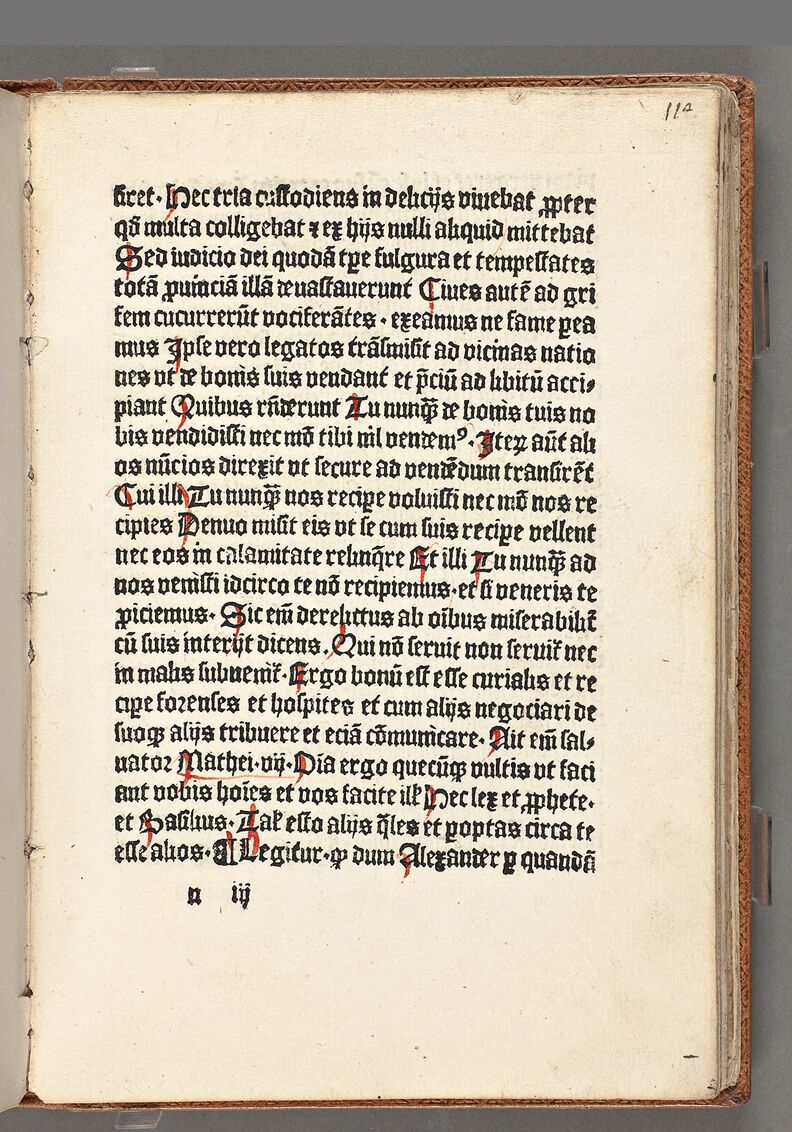 112
ſiret· Hec tria cuſtodiens in delicijs viuebat ꝓpter
qđ multa colligebat ⁊ ex hijs nulli aliquid mittebat
Sed iudicio dei quodā tꝑe fulgura et tempeſtates
totā ꝓuinciā illā deuaſtauerunt Ciues autē ad gri
fem cucurrerūt vociferātes · exeamus ne fame ꝑea
mus Ipſe vero legatos trāſmiſit ad vicinas natio
nes vt de bonis ſuis vendant et p̄ciū ad libitū acci⸗
piant Quibus rn̄derunt Tu nunqͣ̄ de bonis tuis no
bis vendidiſti nec mō tibi nil vendemꝰ· Iteꝝ aūt ali
os nūcios direxit vt ſecure ad vendēdum tranſirēt
Cui illi Tu nunqͣ̄ nos reciꝑe voluiſti nec mō nos re
cipies Denuo miſit eis vt ſe cum ſuis reciꝑe vellent
nec eos in calamitate relinq̄re Et illi Tu nunqͣ̄ ad
nos veniſti idcirco te nō recipiemus·et ſi veneris te
ꝓiciemus· Sic em̄ derelictus ab oībus miſerabilit̄
cū ſuis interijt dicens· Qui nō ſeruit non ſeruit̄ nec
in malis ſubuenit̄· Ergo bonū eſt eſſe curialis et re
ciꝑe forenſes et hoſpites et cum alijs negociari de
ſuoqꝫ alijs tribuere et eciā cōmunicare· Ait em̄ ſal⸗
uator Mathei·vij· Oīa ergo quecūqꝫ vultis vt faci
ant vobis hoīes et vos facite ill̄ Hec lex et ꝓphete·
et Baſilius· Tal̄ eſto alijs q̄les et ꝑoptas circa te
eſſe alios· ¶ Legitur· ꝙ dum Alexander ꝑ quandā
n iij